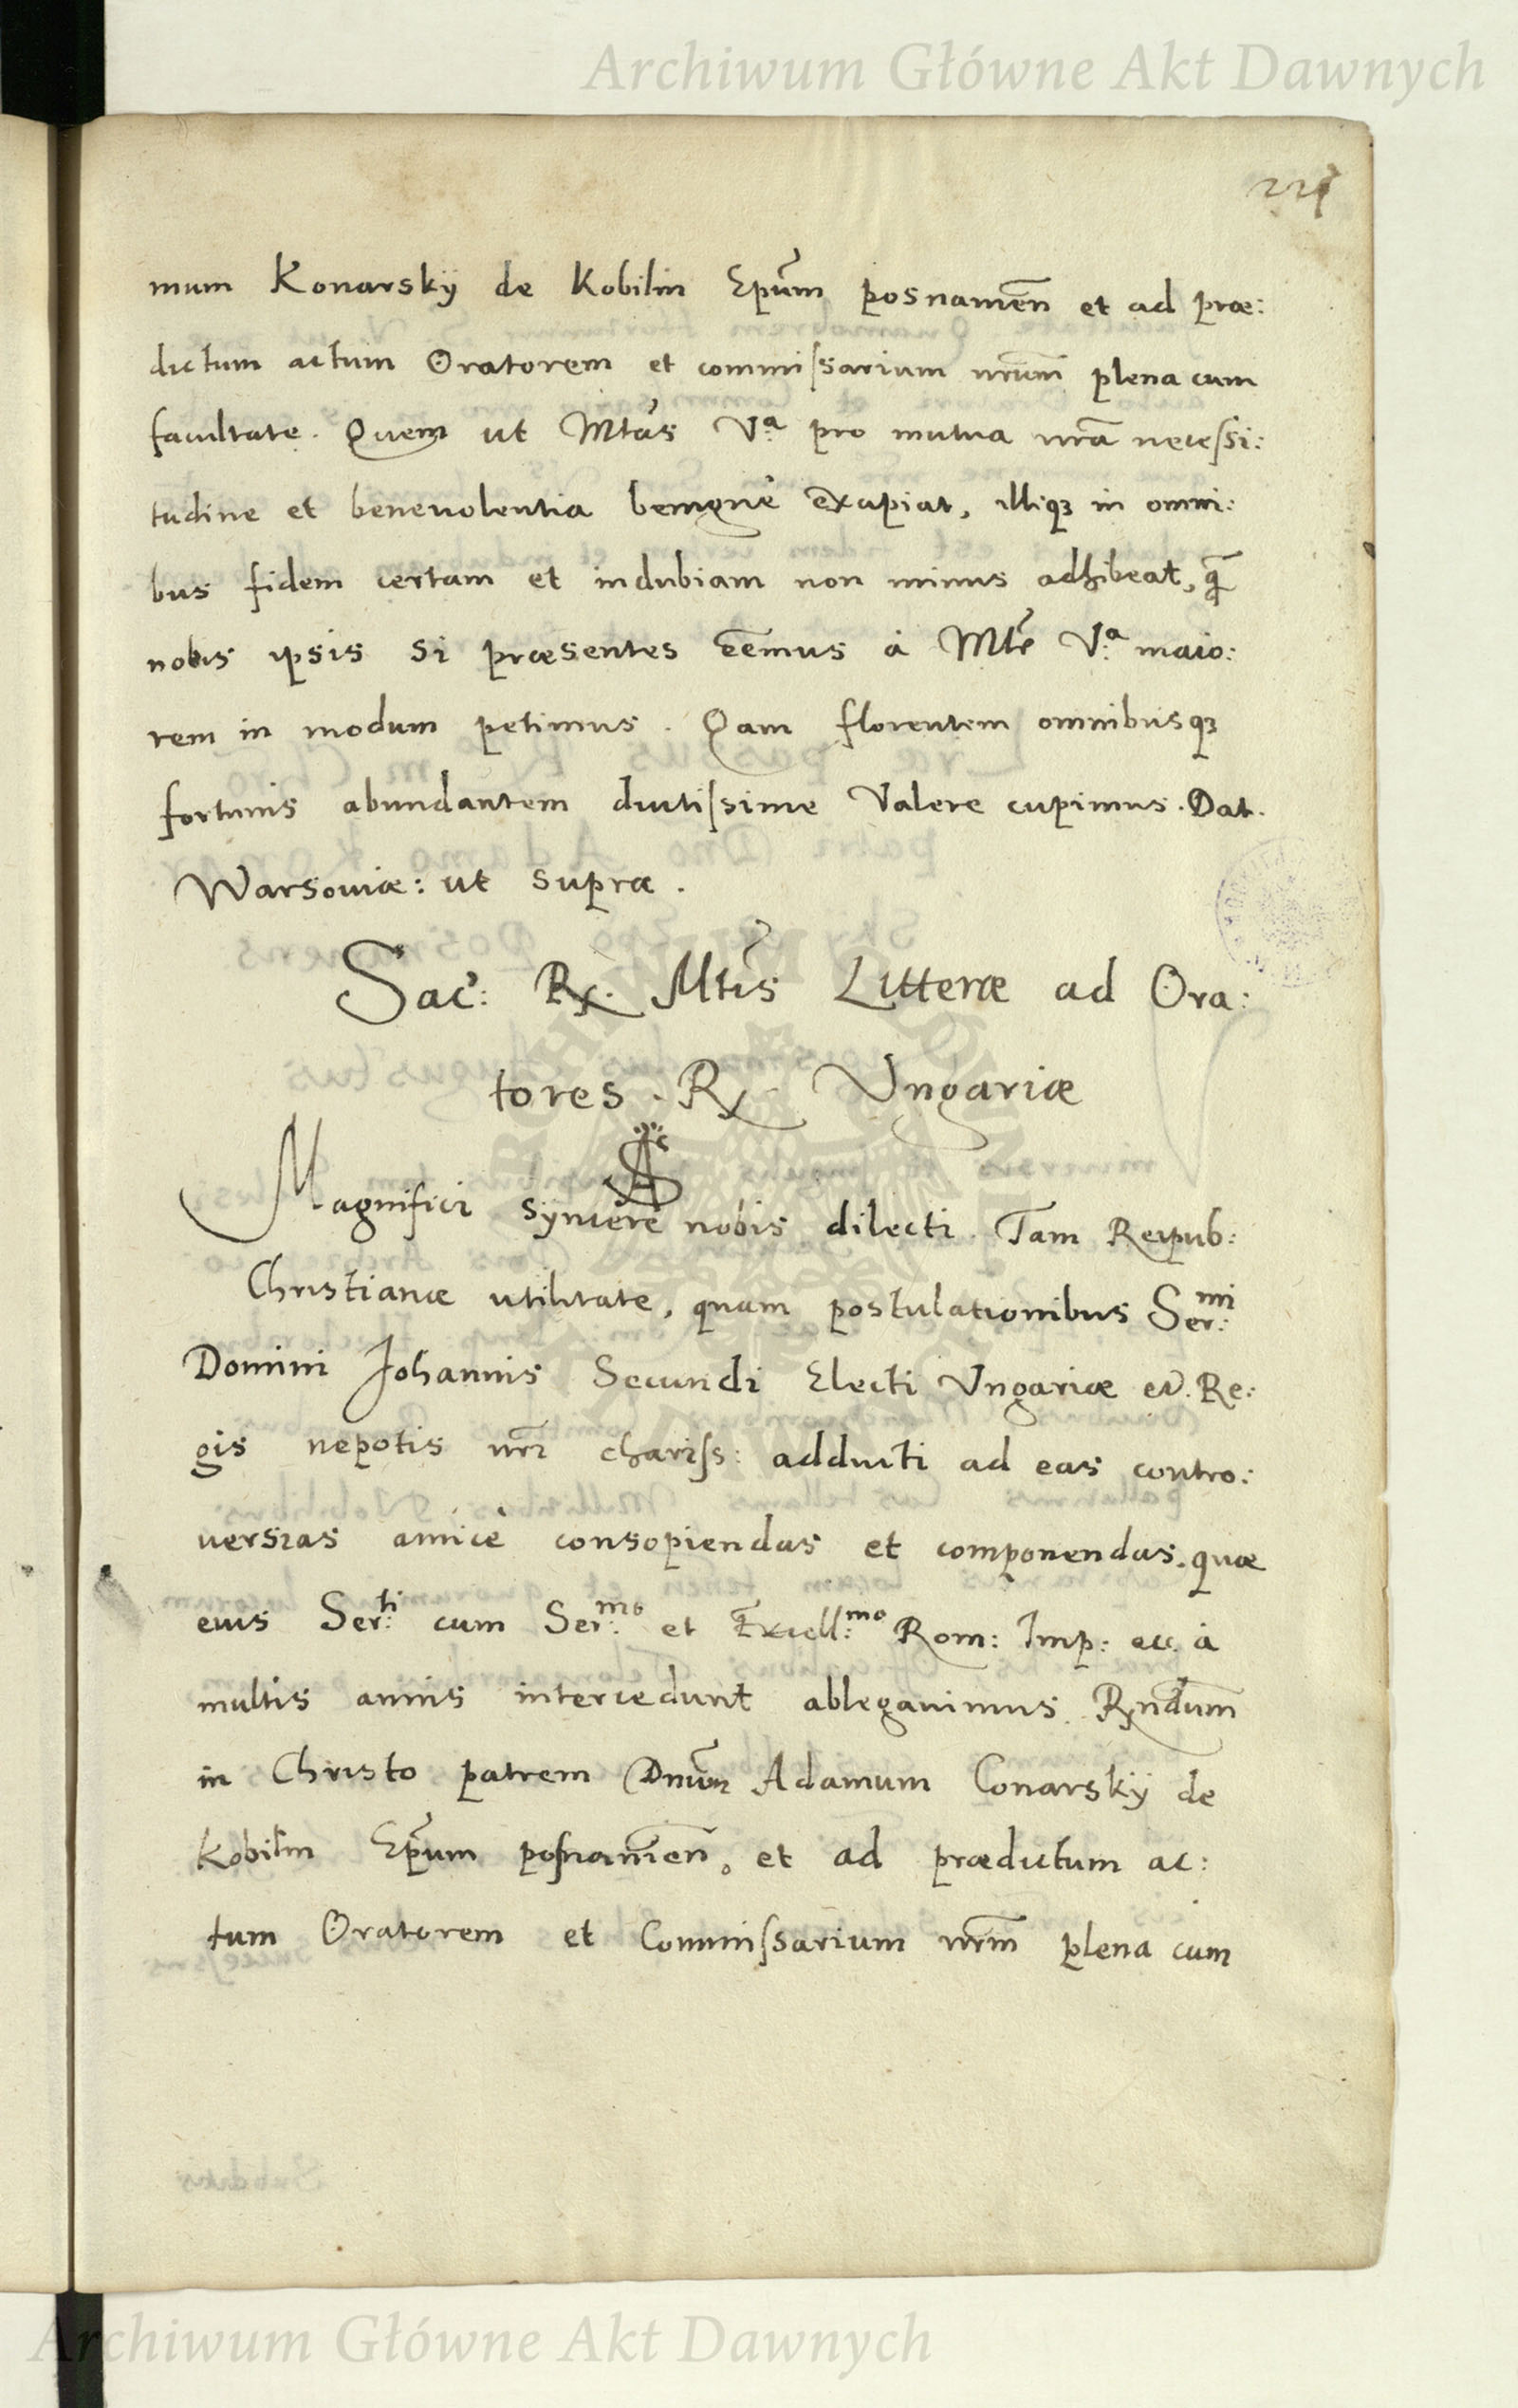 Archiwum Główne Akt Dawnych
mum Konarskÿ de Kobilin Epũm posnameñ et ad præ:
dictum actum Oratorem et commiſsarium nrũm plena cum
facultate. Quem ut Mtãs Vª: pro mutua nrã neceſsi:
tudine et beneuolentia benignè excipiat, illiqꝫ in omni:
bus fidem certam et indubiam non minus adhibeat, q̃
nobis ipsis si præsentes eẽmus à Mtẽ Vª: maio:
rem in modum petimus. Qam florentem omnibusqꝫ
fortunis abundantem diutiſsime Valere cupimus. Dat.
Warsouiæ: ut supra.
Sac: Rx. Mtis Litteræ ad Ora:
tores. Rx Vngariæ
SA
Magnifici syncerè nobis dilecti. Tam Reipub:
Christianæ utilitate, quam postulationibus Ser:mi
Domini Johannis Secundi Electi Vngariæ etc. Re:
gis nepotis nrĩ chariſs: adducti ad eas contro:
uersias amicè consopiendas et componendas. quæ
eius Ser:ti cum Ser:mo et Excell:mo Rom: Imp: etc. à
multis annis intercedunt ablegauimus. Rxndum̃
in Christo patrem Dnũm Adamum Conarskÿ de
Kobilin Epũm poſnameñ, et ad prædictum ac:
tum Oratorem et Commiſsarium nrm̃ plena cum
Archiwum Główne Akt Dawnych